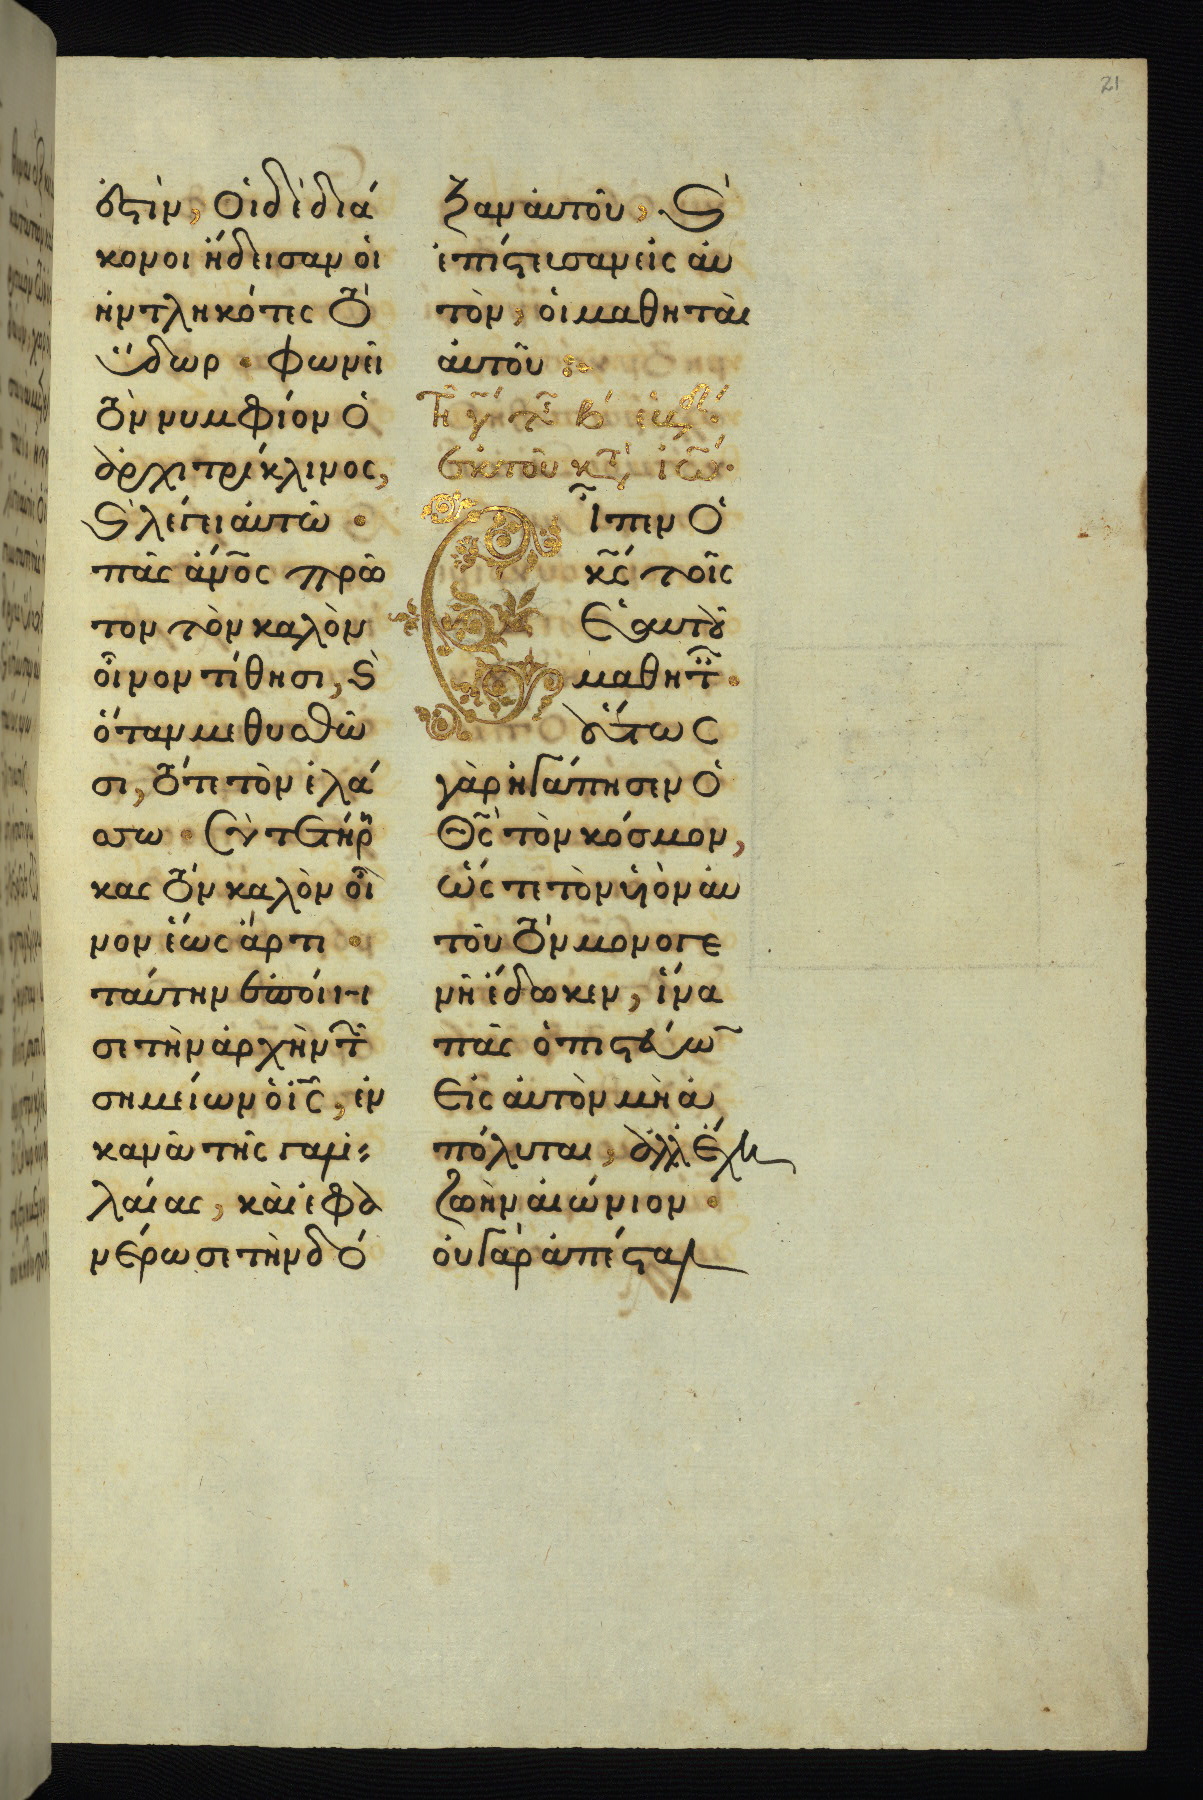 21
ἐστὶν, Οἱ δὲ διά
κονοι ἤδεισαν οἱ
ἠντληκότες τὸ
ὕδωρ · φωνεῖ
τὸν νυμφίον ὁ
ἀρχιτρίκλινος,
καὶ λέγει αὐτῶ ·
πᾶς ἄνος πρῶ
τον τὸν καλὸν
οἶνον τίθησι, καὶ
ὅταν μεθυσθῶ
σι, τότε τὸν ἐλά
σσω · Σὺ τετήρη
κας τὸν καλὸν οἶ
νον ἕως ἄρτι ·
ταύτην ἐποίη
σε τὴν ἀρχὴν τῶν
σημείων ὁ ἰς, ἐν
κανᾶ τῆς γαλι
λαίας, καὶ ἐφα
νέρωσε τὴν δό
ξαν αὐτοῦ, καὶ
ἐπίστευσαν εἰς αὐ
τὸν, οἱ μαθηταὶ
αὐτοῦ :
Τῆ γ τῆς β ἑβδ
Ἐκ τοῦ κτ ἰω ·
Εἶπεν ὁ
κς τοῖς
ἑαυτοῦ
μαθητ ·
οὕτως
γὰρ ἠγάπησεν ὁ
θς τὸν κόσμον,
ὥστε τὸν υἱὸν αὐ
τοῦ τὸν μονογε
νῆ ἔδωκεν, ἵνα
πᾶς ὁ πιστεύων
εἰς αὐτὸν μὴ ἀ
πόληται, ἀλλ ἔχη
ζωὴν αἰώνιον ·
οὐ γὰρ ἀπέσταλ